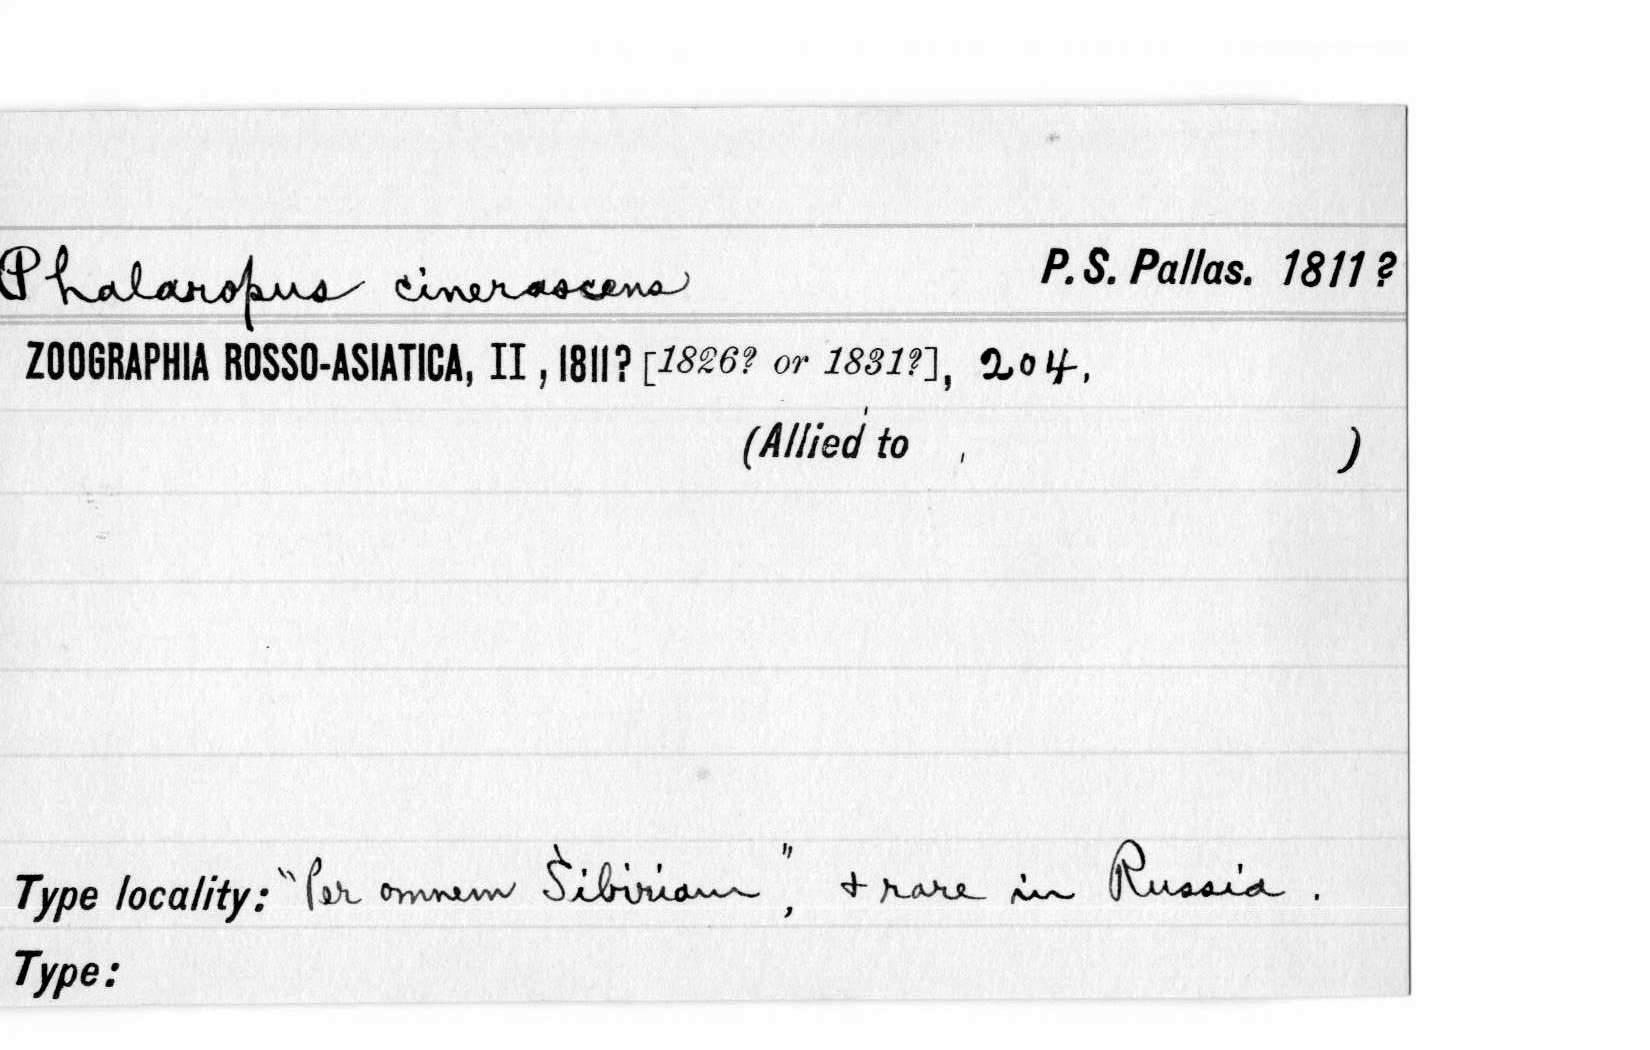 Phalaropus cinerascens P. S. Pallas. 1811?
ZOOGRAPHIA ROSSO-ASIATICA, II, 1811? [1826? or 1831?], 204.
(Allied to )
Type locality: "Per omnem Sibiriam", + rare in Russia.
Type: